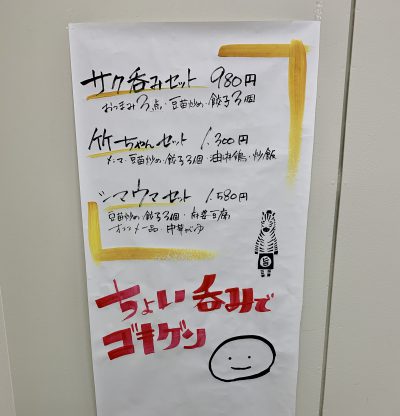 サク呑みセット 980円
おつまみ3点・豆苗炒め・餃子3個
竹ちゃんセット 1.300円
メンマ・豆苗炒め・餃子3個・油淋鶏・炒飯
シマウマセット 1.580円
豆苗炒め・餃子3個・麻婆豆腐
オススメ一品・中華がゆ
ちょい呑みで
ゴキゲン